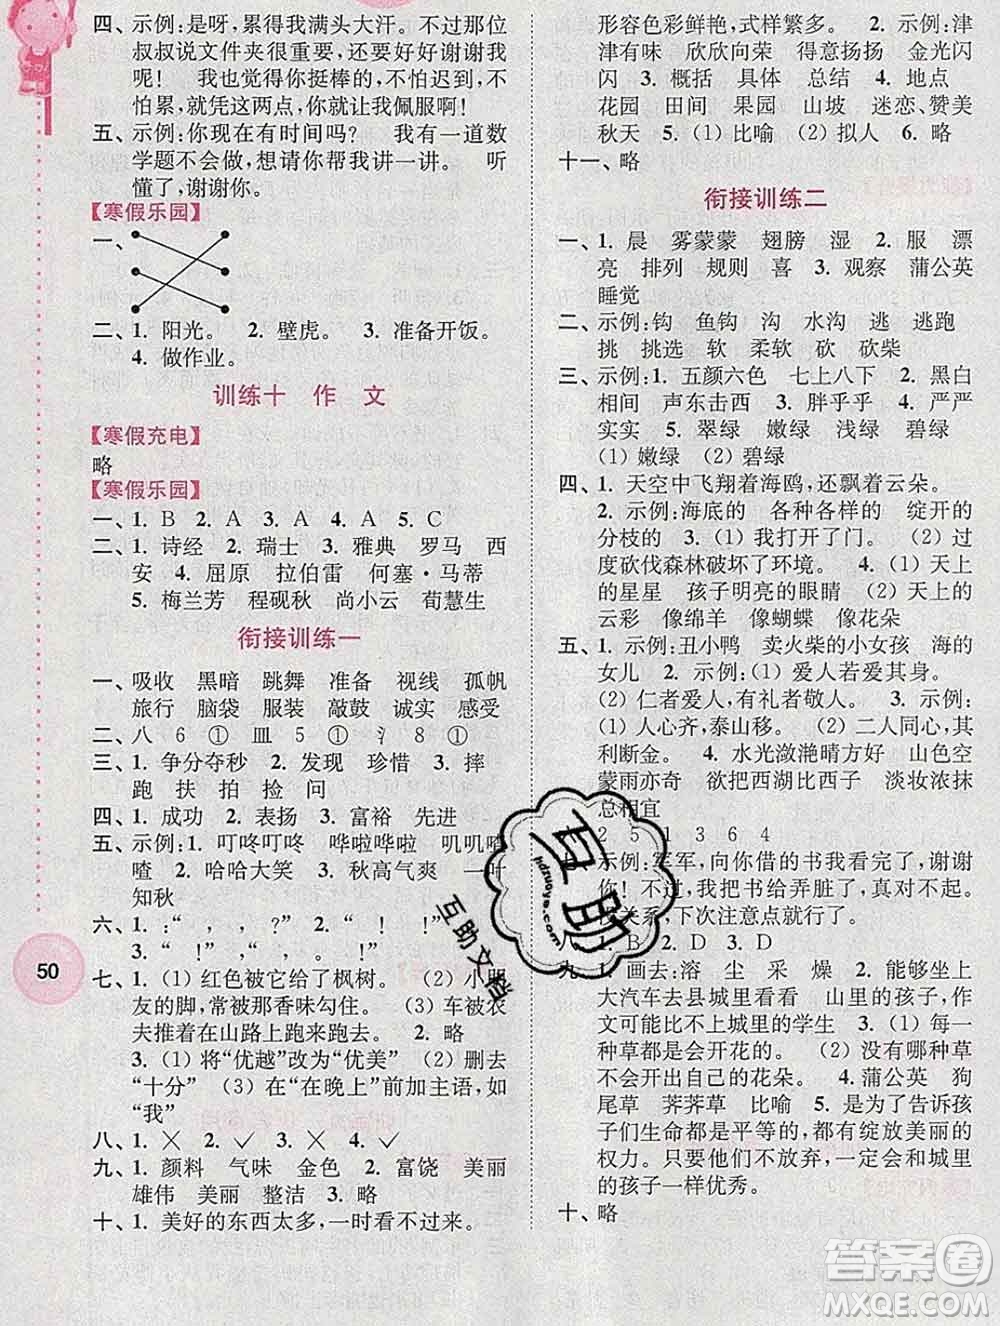 四、示例:是呀,累得我满头大汗。不过那位
叔叔说文件夹很重要,还要好好谢谢我
呢! 我也觉得你挺棒的,不怕迟到,不
怕累,就凭这两点,就让我佩服啊!
五、示例:你现在有时间吗? 我有一道数
学题不会做,请你帮我讲一讲。 听
懂了,谢谢你。
【寒假乐园】
一、
二、1. 阳光。 2. 壁虎。 3. 准备开饭。
4. 做作业。
训练十 作 文
【寒假充电】
略
【寒假乐园】
一、1. B 2. A 3. A 4. A 5. C
二、1. 诗经 2. 瑞士 3. 雅典 罗马 西
安 4. 屈原 拉伯雷 何塞·马蒂
5. 梅兰芳 程砚秋 尚小云 荀慧生
衔接训练一
一、吸收 黑暗 跳舞 准备 视线 孤帆
旅行 脑袋 服装 敲鼓 诚实 感受
二、八 6 ① 皿 5 ① 氵 8 ①
三、1. 争分夺秒 发现 珍惜 3. 摔
跑 扶 拍 捡 问
四、1. 成功 2. 表扬 3. 富裕 先进
五、示例:1. 叮咚叮咚 哗啦哗啦 叽叽喳
喳 2. 哈哈大笑 3. 秋高气爽 一叶
知秋
六、1. :“ , ?” 2. :“ , !”
3. “ !” “ !”
七、1. (1) 红色被它给了枫树。 (2) 小朋
友的脚,常被那香味勾住。 (3) 车被农
夫推着在山路上跑来跑去。 2. 略
3. (1) 将“优越”改为“优美” (2) 删去
“十分” (3) 在“在晚上”前加主语,如
“我”
八、1. × 2. ✓ 3. × 4. ✓
九、1. 颜料 气味 金色 2. 富饶 美丽
雄伟 美丽 整洁 3. 略
十、1. 美好的东西太多,一时看不过来。
50
形容色彩鲜艳,式样繁多。 2. 示例:津
津有味 欣欣向荣 得意扬扬 金光闪
闪 3. 概括 具体 总结 4. 地点
花园 田间 果园 山坡 迷恋、赞美
秋天 5. (1) 比喻 (2) 拟人 6. 略
十一、略
衔接训练二
一、1. 晨 雾蒙蒙 翅膀 湿 2. 服 漂
亮 排列 规则 喜 3. 观察 蒲公英
睡觉
二、示例:钩 鱼钩 沟 水沟 逃 逃跑
挑 挑选 软 柔软 砍 砍柴
三、示例:1. 五颜六色 七上八下 2. 黑白
相间 声东击西 3. 胖乎乎 4. 严严
实实 5. 翠绿 嫩绿 浅绿 碧绿
(1) 嫩绿 (2) 碧绿
四、1. 天空中飞翔着海鸥,还飘着云朵。
2. 示例:海底的 各种各样的 绽开的
分枝的 3. (1) 我打开了门。 (2) 过
度砍伐森林破坏了环境。 4. (1) 天上
的星星 孩子明亮的眼睛 (2) 天上的
云彩 像绵羊 像蝴蝶 像花朵
五、1. 示例:丑小鸭 卖火柴的小女孩 海的
女儿 2. 示例:(1) 爱人若爱其身。
(2) 仁者爱人,有礼者敬人。 3. 示例:
(1) 人心齐,泰山移。 (2) 二人同心,其
利断金。 4. 水光潋滟晴方好 山色空
蒙雨亦奇 欲把西湖比西子 淡妆浓抹
总相宜
2 5 1 3 6 4
示例:军军,向你借的书我看完了,谢谢
你! 不过,我把书给弄脏了,真对不起。
关系,下次注意点就行了!
1. D
九、1. 画去:溶 尘 采 燥 2. 能够坐
大汽车去县城里看看 山里的孩子,作
文可能比不上城里的学生 3. (1) 每一
种草都会开花的。 (2) 没有哪种草
不会开自己的花朵。 4. 蒲公英 狗
尾草 荠荠草 比喻 5. 为了告诉孩
子们生命是平等的,都有绽放美丽的
权力。只要他们不放弃,一定会和城里
的孩子一样优秀。
十、略
互助
hdzuoye.com
互助文档
答案圈
MXQE.COM